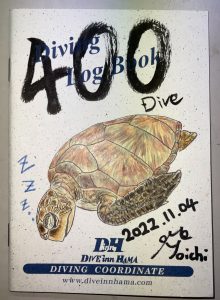 400
Diving
Log Book
Dive
Z
Z
Z...
2022.11.04
Yoichi
DiH
DIVE inn HAMA
DIVING COORDINATE
www.diveinnhama.com